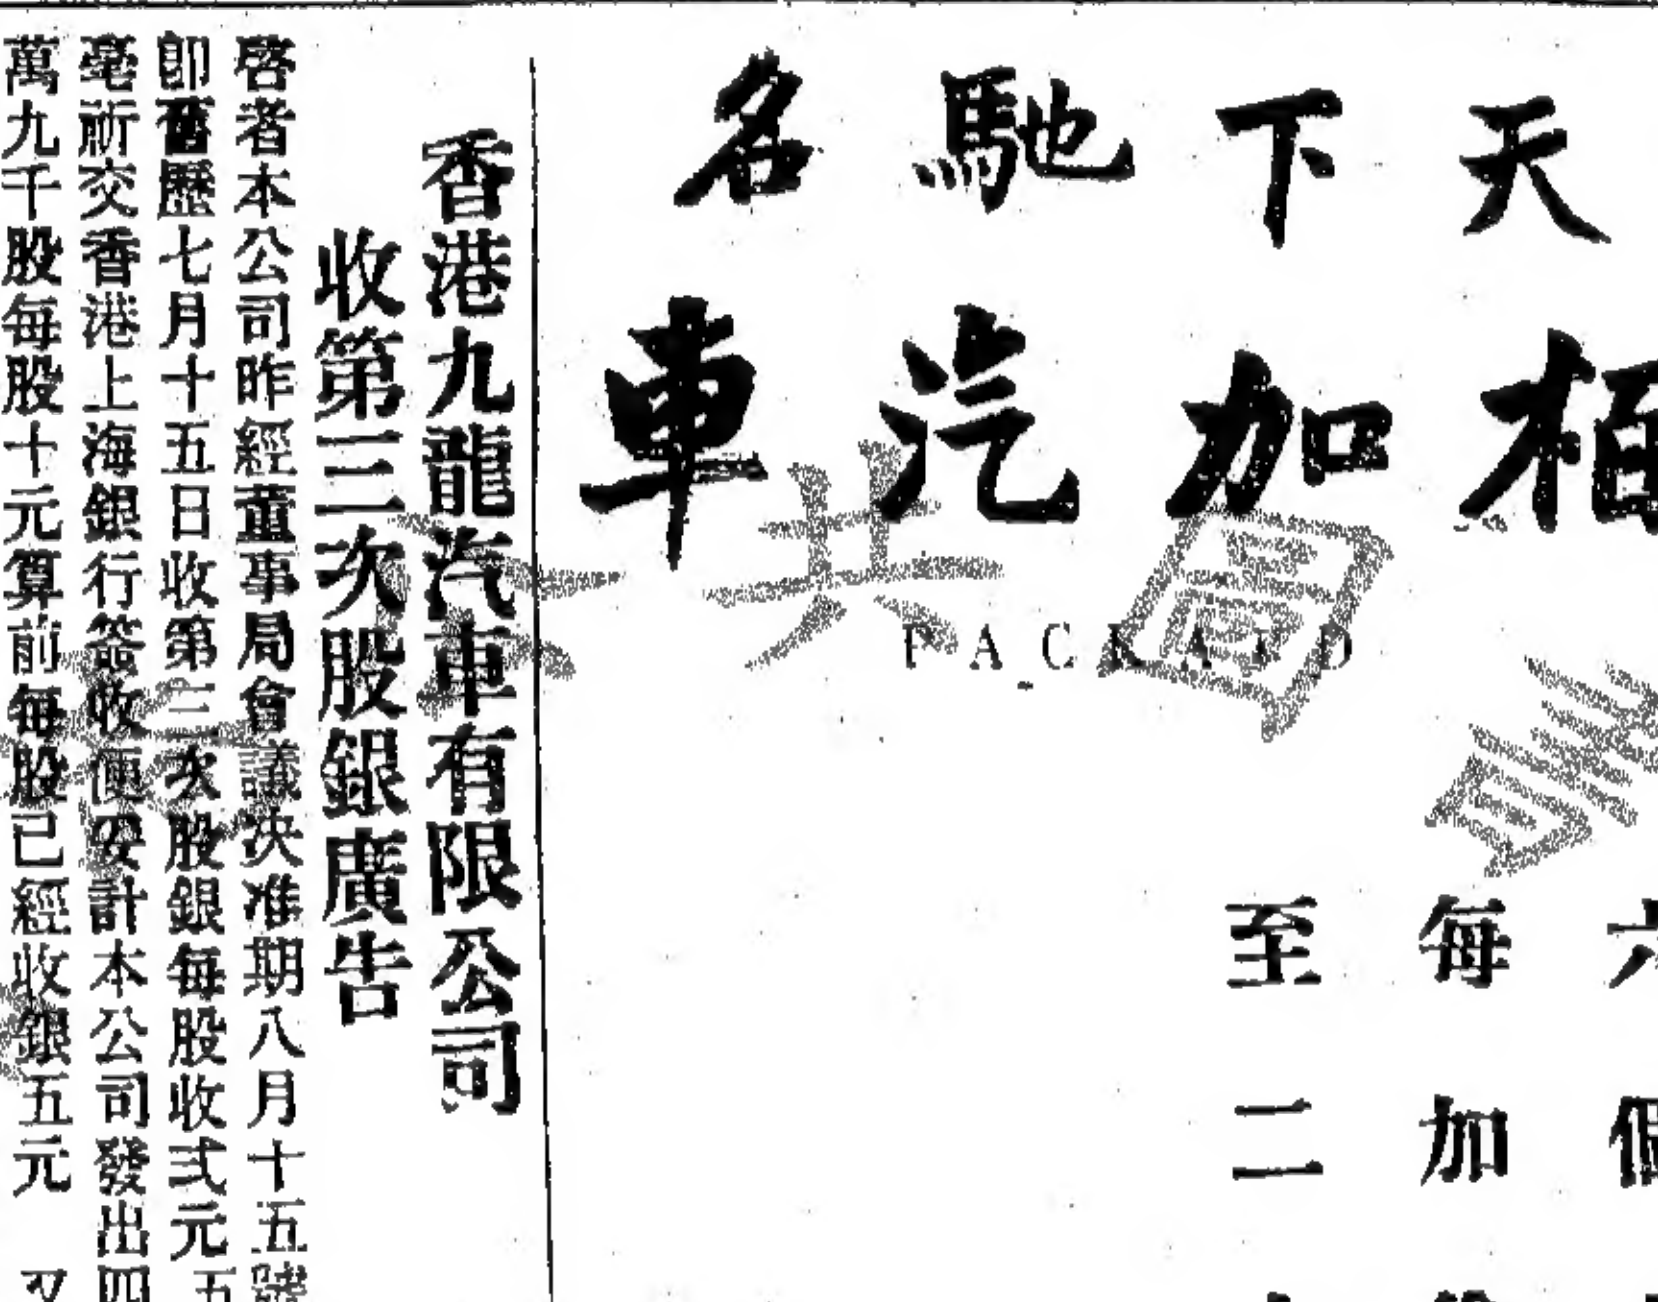 天下馳名
栢加汽車
PACKARD
六個
每加
至二
香港九龍汽車有限公司
收第三次股銀廣告
啓者本公司昨經董事局會議决准期八月十五號
卽舊歷七月十五日收第三次股銀每股收弍元五
毫所交香港上海銀行簽收便妥計本公司發出四
萬九千股每股十元算前每股已經收銀五元 又